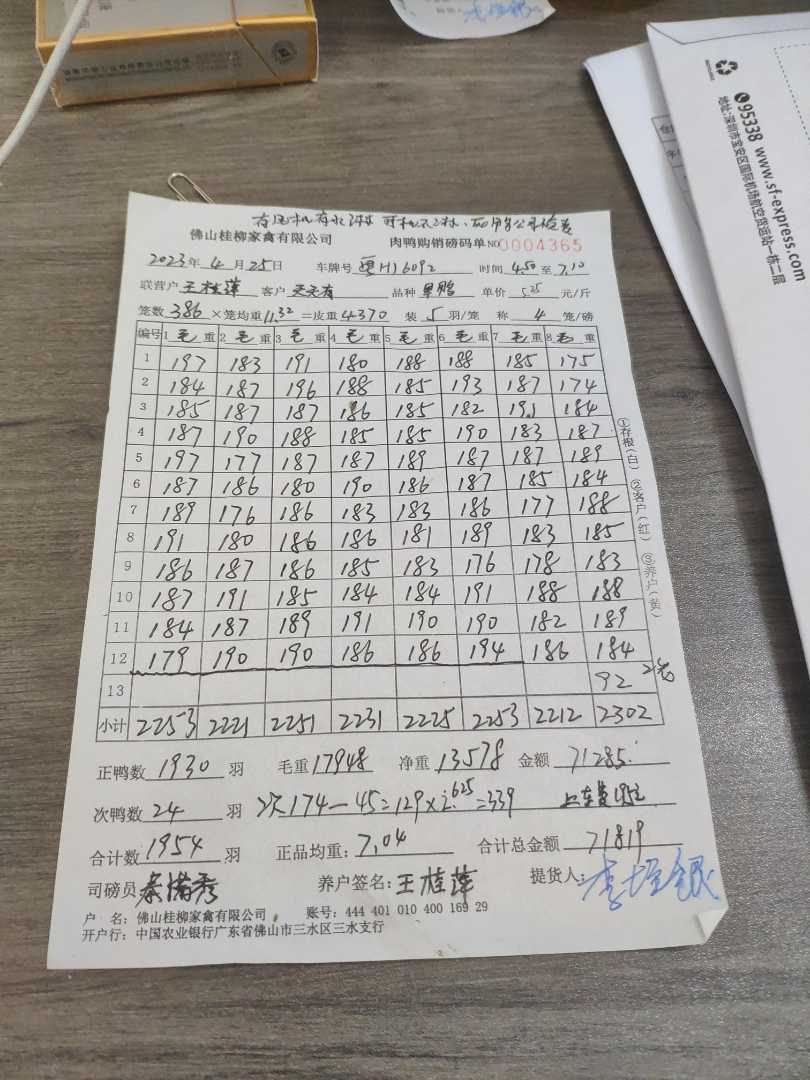 佛山桂柳家禽有限公司 肉鸭购销磅码单 NO 0004365
2023年 4 月 25日 车牌号 粤HJ6092 时间 4.50 至 7.10
联营户 王桂萍 客户 品种 单价 5.25 元/斤
笼数 386 ×笼均重 11.32 =皮重 4370 装 5 羽/笼 称 4 笼/磅
编号 1 毛 重 2 毛 重 3 毛 重 4 毛 重 5 毛 重 6 毛 重 7 毛 重 8 毛 重
1 197 183 191 180 188 188 185 175
2 184 187 196 188 185 193 187 174
3 185 187 187 186 185 182 191 184
4 187 190 188 185 185 190 183 187
5 197 177 187 187 189 187 187 189
6 187 186 180 190 186 187 185 184
7 189 176 186 183 183 186 177 188
8 191 180 186 186 181 189 183 185
9 186 187 186 185 183 176 178 183
10 187 191 185 184 184 191 188 188
11 184 187 189 191 190 190 182 189
12 179 190 190 186 186 194 186 184
13 92
小计 2253 2221 2251 2231 2225 2253 2212 2302
正鸭数 1930 羽 毛重 17948 净重 13578 金额 71285.
次鸭数 24 羽 次174-45=129×2.625=339
合计数 1954 羽 正品均重: 7.04 合计总金额 71819
司磅员 秦满秀 养户签名: 王桂萍 提货人:
户 名: 佛山桂柳家禽有限公司 账号: 444 401 010 400 169 29
开户行: 中国农业银行广东省佛山市三水区三水支行
①存根(白) ②客户(红) ③养户(黄)
95338 www.sf-express.com
地址:深圳市宝安区国际机场航空货运站一栋二层